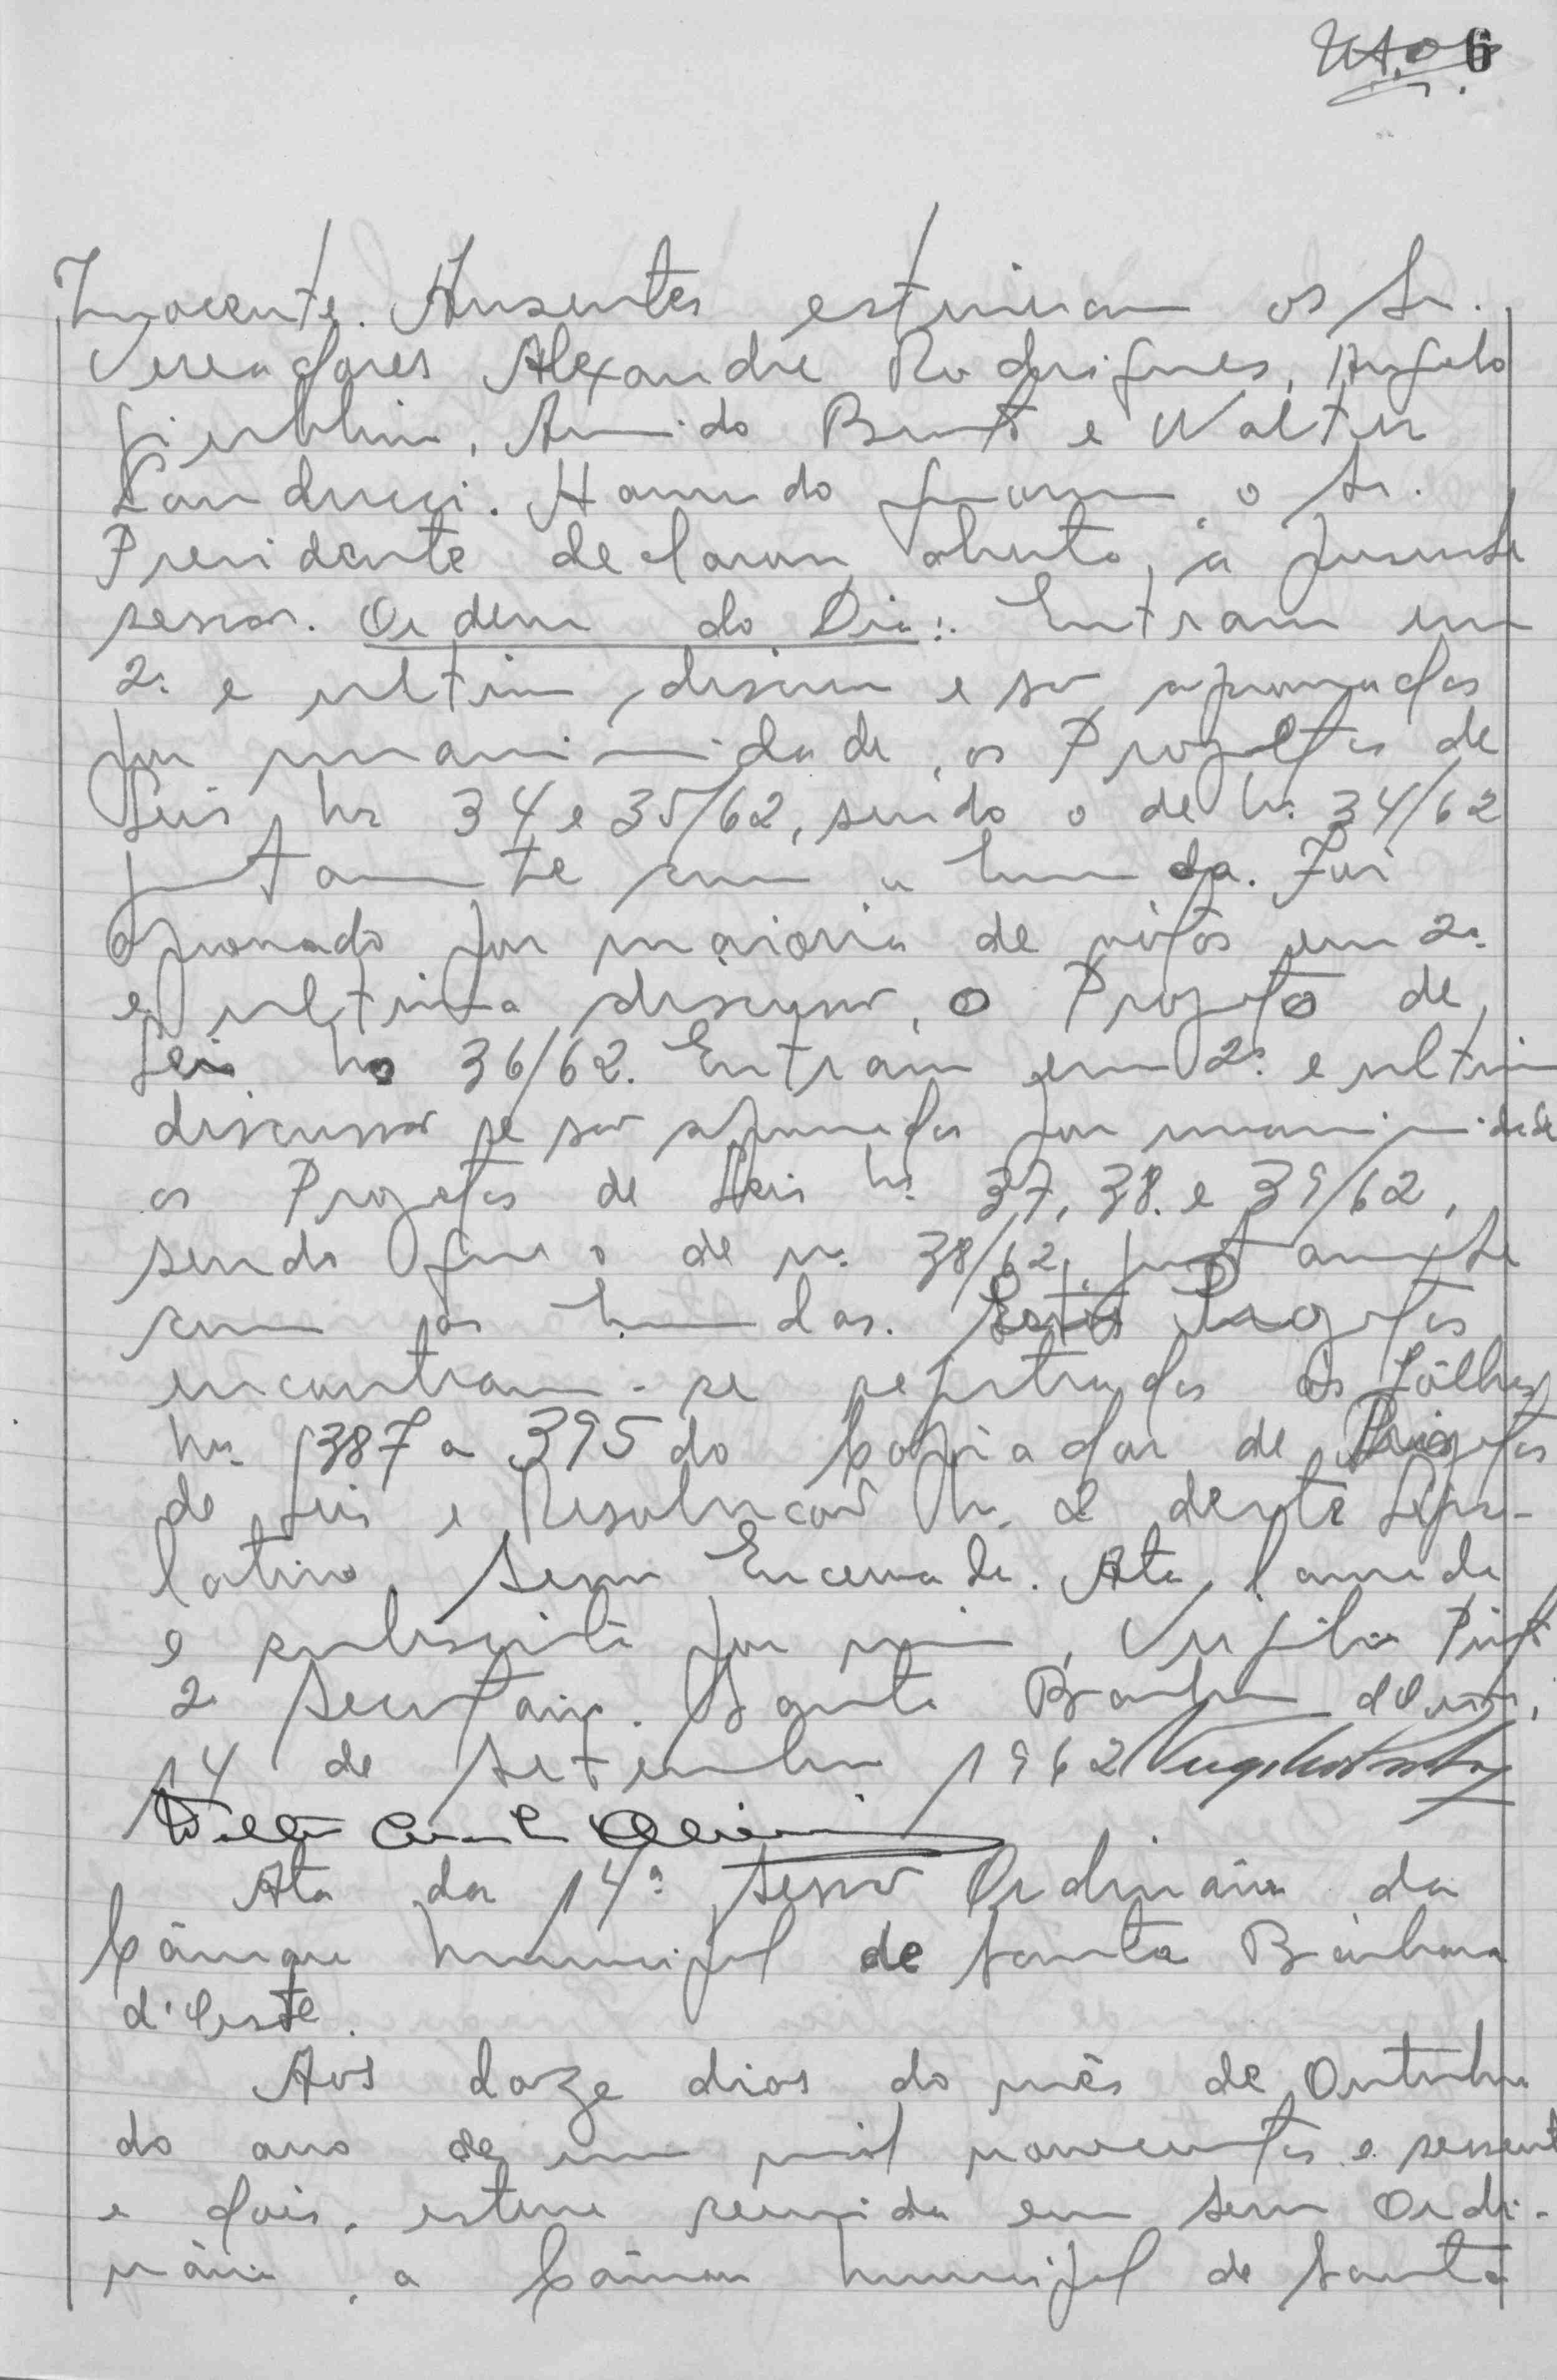 6
Inocente. Ausentes estiveram os Sr.
Vereadores Alexandre Rodrigues, Angelo
Giubbina, Armindo Bento e Walter
Landucci. Havendo o Sr.
Presidente declarou aberta, a presente
sessão. Ordem do Dia: Entram em
2ª e ultima discussão e são aprovados
por unanimidade, os Projetos de
Leis nº 34 e 35/62, sendo o de nº 34/62
juntamente com a Emenda. Foi
aprovado por maioria de vótos em 2ª
e ultima discussão, o Projeto de
Leis nº 36/62. Entram em 2ª e ultima
discussão e são aprovados por unanimidade
os Projetos de Leis nº 37, 38 e 39/62,
sendo que o de nº 38/62, juntamente
com as Emendas. Estes Projetos
encontram-se registrados ás Fôlhas
nº 387 a 395 do Copiador de Projetos
de Leis e Resolução Nº 2 deste Legis-
lativo. Sessão Encerrada. Ata lavrada
e subscrita por mim, Virgilio Pinto
2º Secretario. Santa Barbara d'Oeste,
14 de Setembro 1962
Ata da 14ª Sessão Ordinária da
Câmara Municipal de Santa Bárbara
d'Oeste.
Aos doze dias do mês de Outubro
do ano de um mil novecentos e sessenta
e dois, esteve reunida em Sessão Ordi-
nária, a Câmara Municipal de Santa